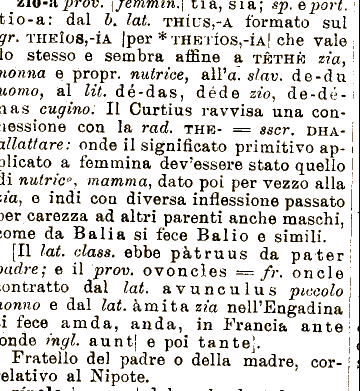 zio-a prov. [femmin.] tia, sia; sp. e port.
tio-a: dal b. lat. THÍUS,-A formato sul
gr. THEÎOS,-IA [per * THETÍOS,-IA] che vale
lo stesso e sembra affine a TÊTHÊ zia,
nonna e propr. nutrice, all'a. slav. de-du
uomo, al lit. dé-das, déde zio, de-dé-
nas cugino. Il Curtius ravvisa una con-
nessione con la rad. THE- = sscr. DHA-
allattare: onde il significato primitivo ap-
plicato a femmina dev'essere stato quello
di nutrice, mamma, dato poi per vezzo alla
zia, e indi con diversa inflessione passato
per carezza ad altri parenti anche maschi,
come da Balia si fece Balio e simili.
[Il lat. class. ebbe pàtruus da pater
padre; e il prov. ovoncles = fr. oncle
contratto dal lat. avunculus piccolo
nonno e dal lat. àmita zia nell'Engadina
si fece amda, anda, in Francia ante
onde ingl. aunt] e poi tante].
Fratello del padre o della madre, cor-
relativo al Nipote.